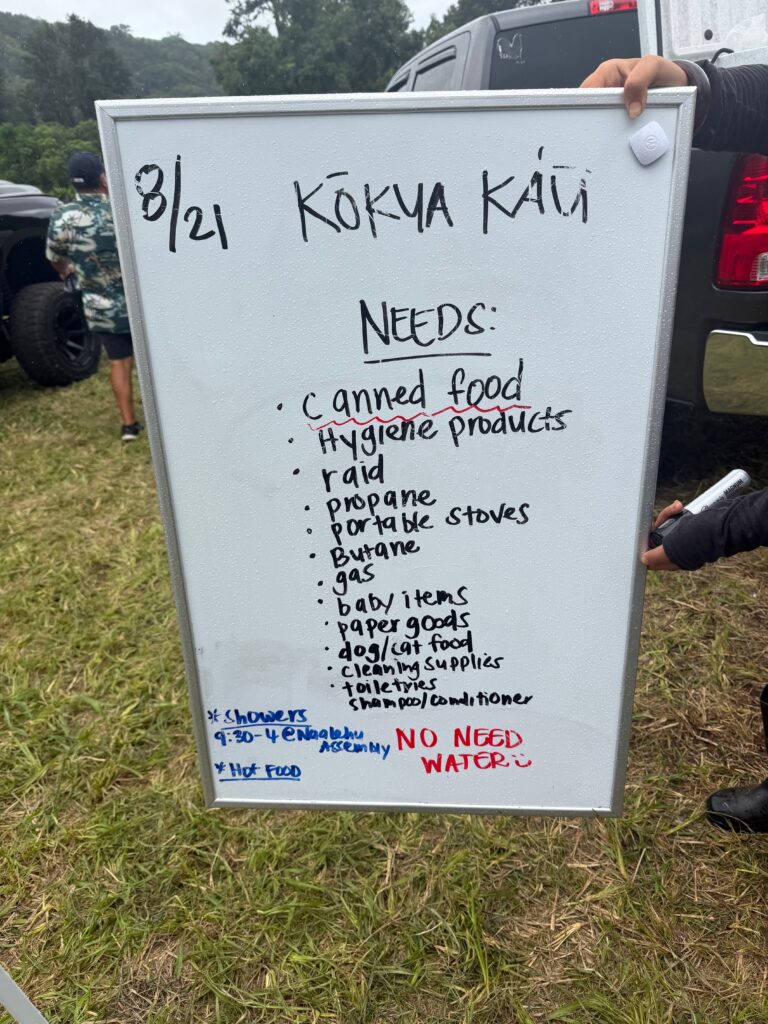 8/21 KŌKUA KAʻŪ
NEEDS:
· canned food
· Hygiene products
· raid
· propane
· portable stoves
· Butane
· gas
· baby items
· paper goods
· dog/cat food
· cleaning supplies
· toiletries
shampoo/conditioner
* Showers
9:30-4 @ Naalehu
Assembly
* Hot Food
NO NEED
WATER